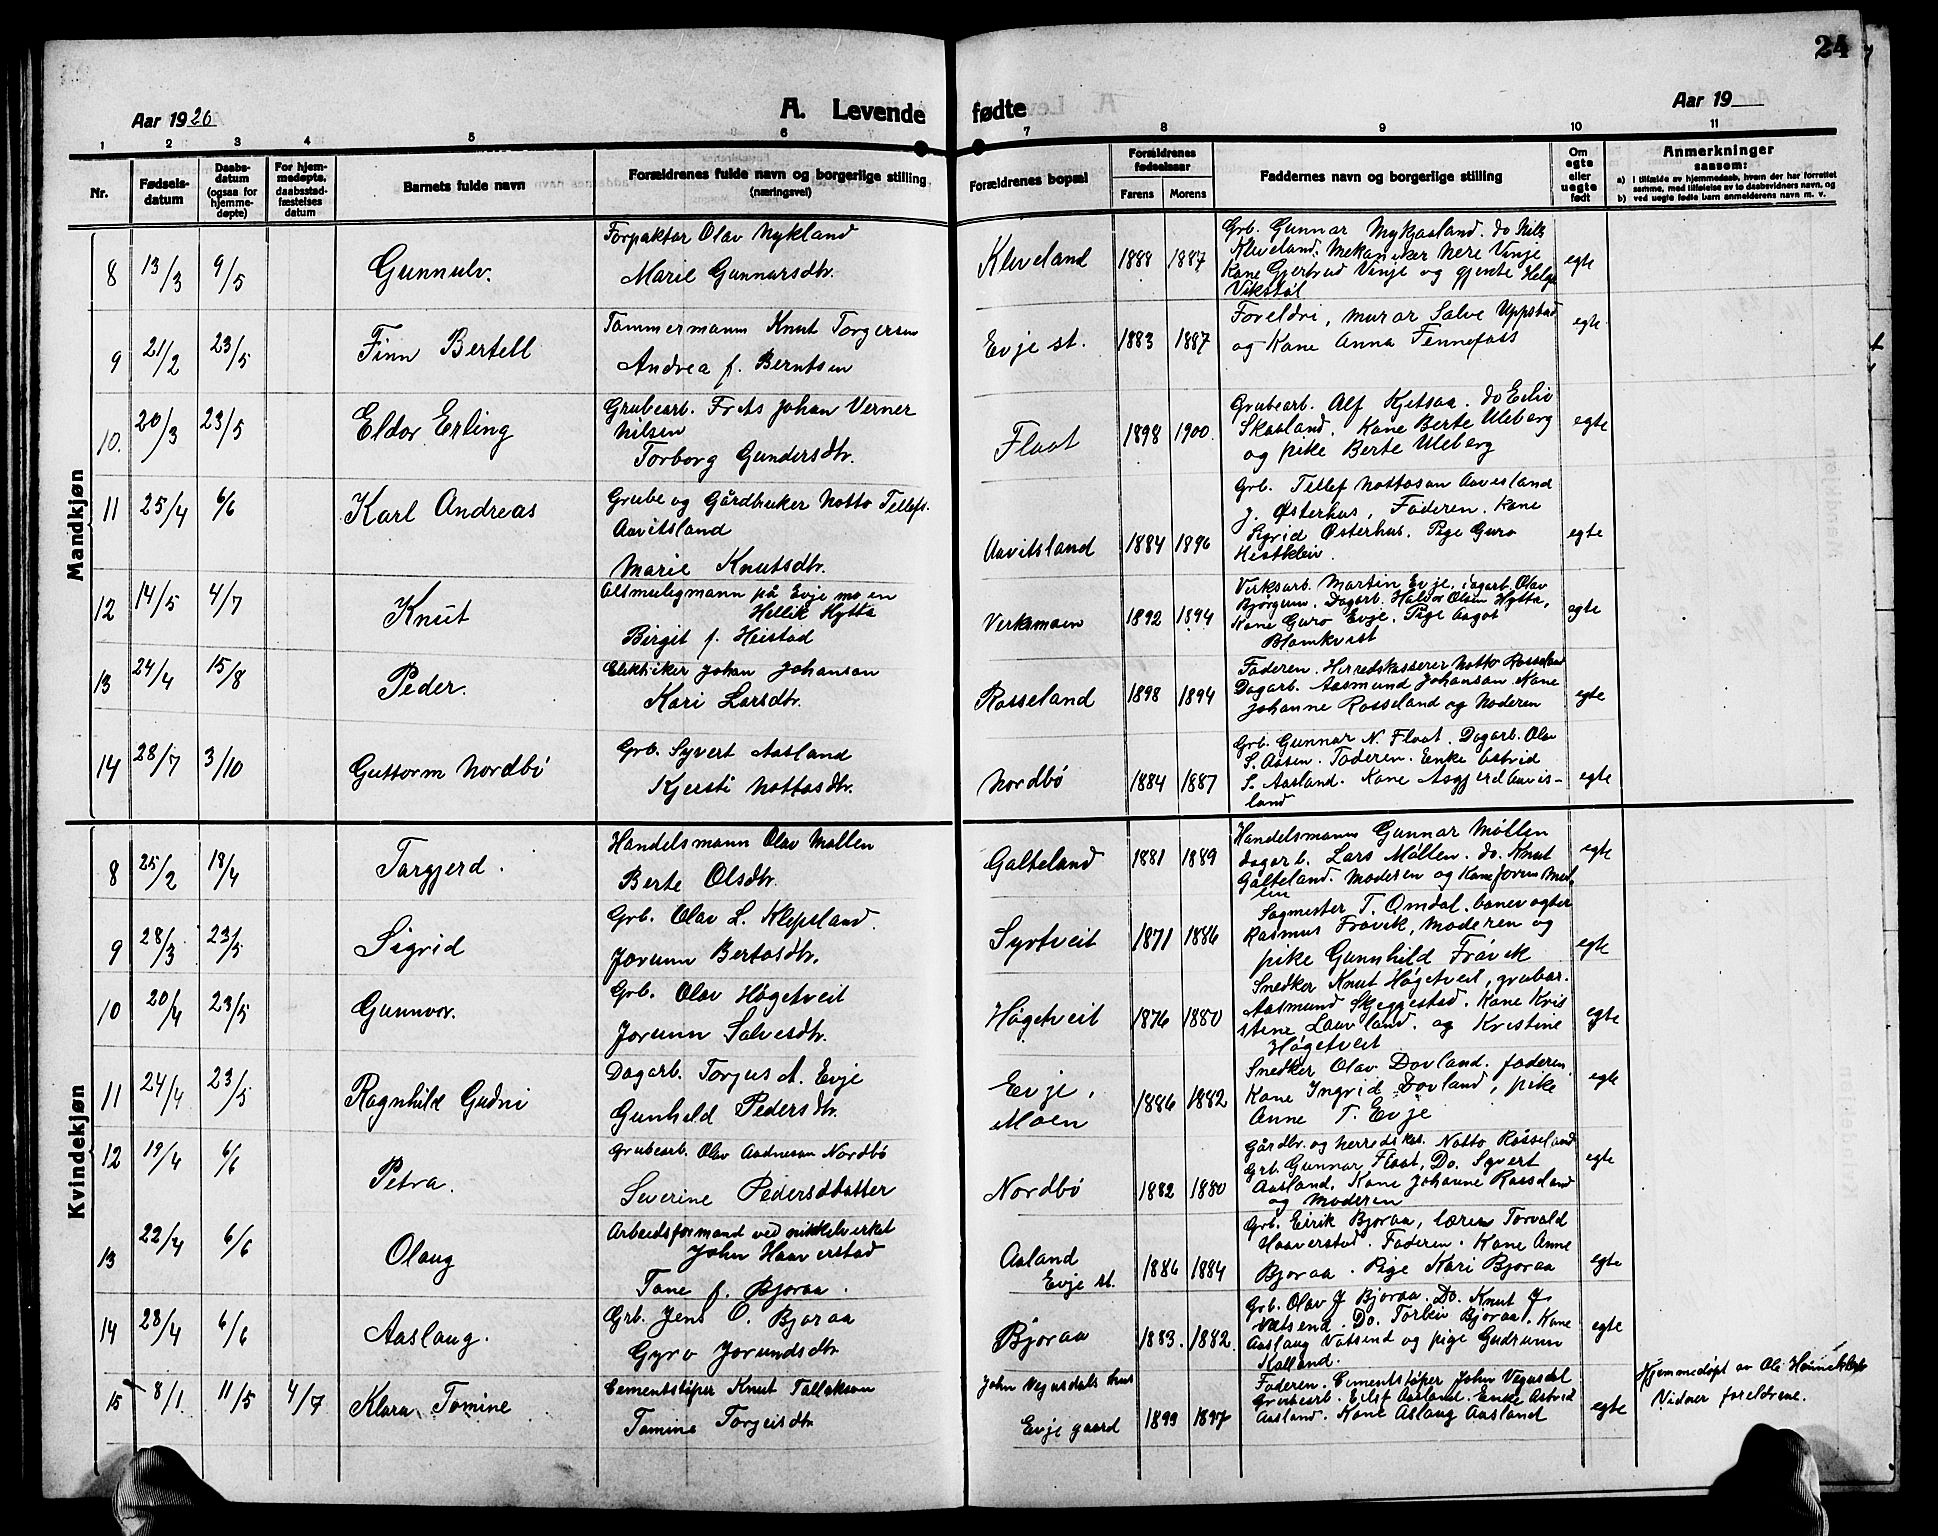 24
Aar 1920
A. Levende fødte
Aar 19
1 2 3 4 5 6 7 8 9 10 11
Nr.
Fødsels-
datum
Daabs-
datum
(ogsaa for
hjemme-
døpte)
For hjem-
medøpte,
daabsstad-
fæstelses
datum
Barnets fulde navn
Forældrenes fulde navn og borgerlige stilling
(næringsvei)
Forældrenes bopæl
Forældrenes
fødselsaar
Farens Morens
Faddernes navn og borgerlige stilling
Om
egte
eller
uegte
født
Anmerkninger
saasom:
a) i tilfælde av hjemmedaab, hvem der har forrettet
samme, med tilføielse av to daabsvidners navn, og
b) ved uegte fødte barn anmelderens navn m. v.
Mandkjøn
8 13/3 9/5 Gunnulv.
Forpaktar Olav Nykland
Marie Gunnarsdtr.
Kleveland 1888 1887
Grb. Gunnar Mykjaasland. do Nils
Kleveland. Mekaniker Nere Vinje
Kone Gjertrud Vinje og gjente Helga
Vikstøl
egte
9 21/2 23/5 Finn Bertell
Tømmermann Knut Torgersen
Andrea f. Berntsen
Evje st. 1883 1887
Foreldri, murar Salve Uppstad
og Kone Anna Fennefoss
egte
10. 20/3 23/5 Eldor Erling
Grubearb. Frits Johan Verner
Nilsen
Torborg Gundersdtr.
Flaat 1898 1900.
Grubearb. Alf Kjetsaa. do Eiliv
Skaaland. Kone Berte Uleberg
og pike Berte Uleberg
egte
11 25/4 6/6 Karl Andreas
Grube og Gårdbruker Notto Tellefs.
Aavitsland
Marie Knutsdtr.
Aavitsland 1884 1896
Grb. Tellef Nottosen Aavesland
J. Østerhus, Faderen. Kone
Sigrid Østerhus. Pige Guro
Hestkleiv.
egte
12 14/5 4/7 Knut
Altmuligmann på Evje mo en
Hellik Hytta
Birgit f. Heistad
Verksmoen 1892 1894
Virksarb. Martin Evje, dagarb. Olav
Bjørgum. Dagarb. Halvor Olsen Hytta,
Kone Guro Evje. Pige Aagot
Blomkvist
egte
13 24/4 15/8 Peder.
Elektriker Johan Johanson
Kari Larsdtr.
Rosseland 1898 1894
Faderen. Herredskasserer Notto Rosseland
Dagarb. Aasmund Johanson. Kone
Johanne Rosseland og Moderen
egte
14 28/7 3/10 Guttorm Nordbö
Grb. Syvert Aasland
Kjersti Nottosdtr.
Nordbö 1884 1887
Grb. Gunnar N. Flaat. Dagarb. Olav
S. Aasen. Faderen. Enke Astrid
S. Aasland. Kone Asgjerd Aavis-
land
egte
Kvindekjøn
8 25/2 18/4 Targjerd.
Handelsmann Olav Møllen
Berte Olsdtr.
Galteland 1881 1889
Handelsmann Gunnar Møllen
dagarb. Lars Møllen. do. Knut
Galteland. Moderen og Kone Joren Møl,
len
egte
9 28/3 23/5 Sigrid
Grb. Olav L. Klepsland.
Jorunn Bertosdtr.
Syrtveit 1871 1886
Sagmester T. Omdal. banevogter
Rasmus Frøvik, moderen og
pike Gunnhild Frøvik
egte
10 20/4 23/5 Gunnvor.
Grb. Olav Høgetveit
Jorunn Salvesdtr.
Høgetveit 1876 1880
Snedker Knut Høgetveit, grubar.
Aasmund Skeggestad. Kone Kris
stene Lauvland. og Kristine
Høgetveit
egte
11 24/4 23/5 Ragnhild Gudni
Dagarb. Torjus A. Evje
Gunhild Pedersdtr.
Evje,
Moen 1886 1882
Snedker Olav Dovland. faderen,
Kone Ingrid Dovland, pike
Anne T. Evje
egte
12 19/4 6/6 Petra.
Grubearb. Olav Aadneson Nordbö
Severine Pedersdotter
Nordbö 1882 1880
Gårdbr. og herredskas. Notto Rosseland
Grb. Gunnar Flaat, Do. Syvert
Aasland. Kone Johanne Rosseland
og Moderen
egte
13 22/4 6/6 Olaug
Arbeidsformand ved nikkelverket
John Haaverstad
Tone f. Bjoraa.
Aasland
Evje st. 1886 1884
Grb. Eirik Bjoraa, lærer Torvald
Haaverstad. Faderen. Kone Anne
Bjoraa. Pige Kari Bjoraa
egte
14 28/4 6/6 Aaslaug.
Grb. Jens O. Bjoraa
Gyro Jorundsdtr
Bjoraa 1883. 1882.
Grb. Olav J Bjoraa. Do. Knut J.
Vatsend. Do. Torleiv Bjoraa. Kone
Aaslaug Vatsend og pige Gudrunn
Kalland.
egte
15 8/1 11/5 4/7 Klara Tomine
Cementstøper Knut Tallaksen
Tomine Torgeisdtr
John Vegusdals hus
Evje gaard 1899 1897
Faderen. Cementstøper John Vegusdal
Grubearb. Eilef Aasland. Enke Astrid
Aasland. Kone Aslaug Aasland
egte
Hjemmedøpt av Ole
Vidner foreldrene.